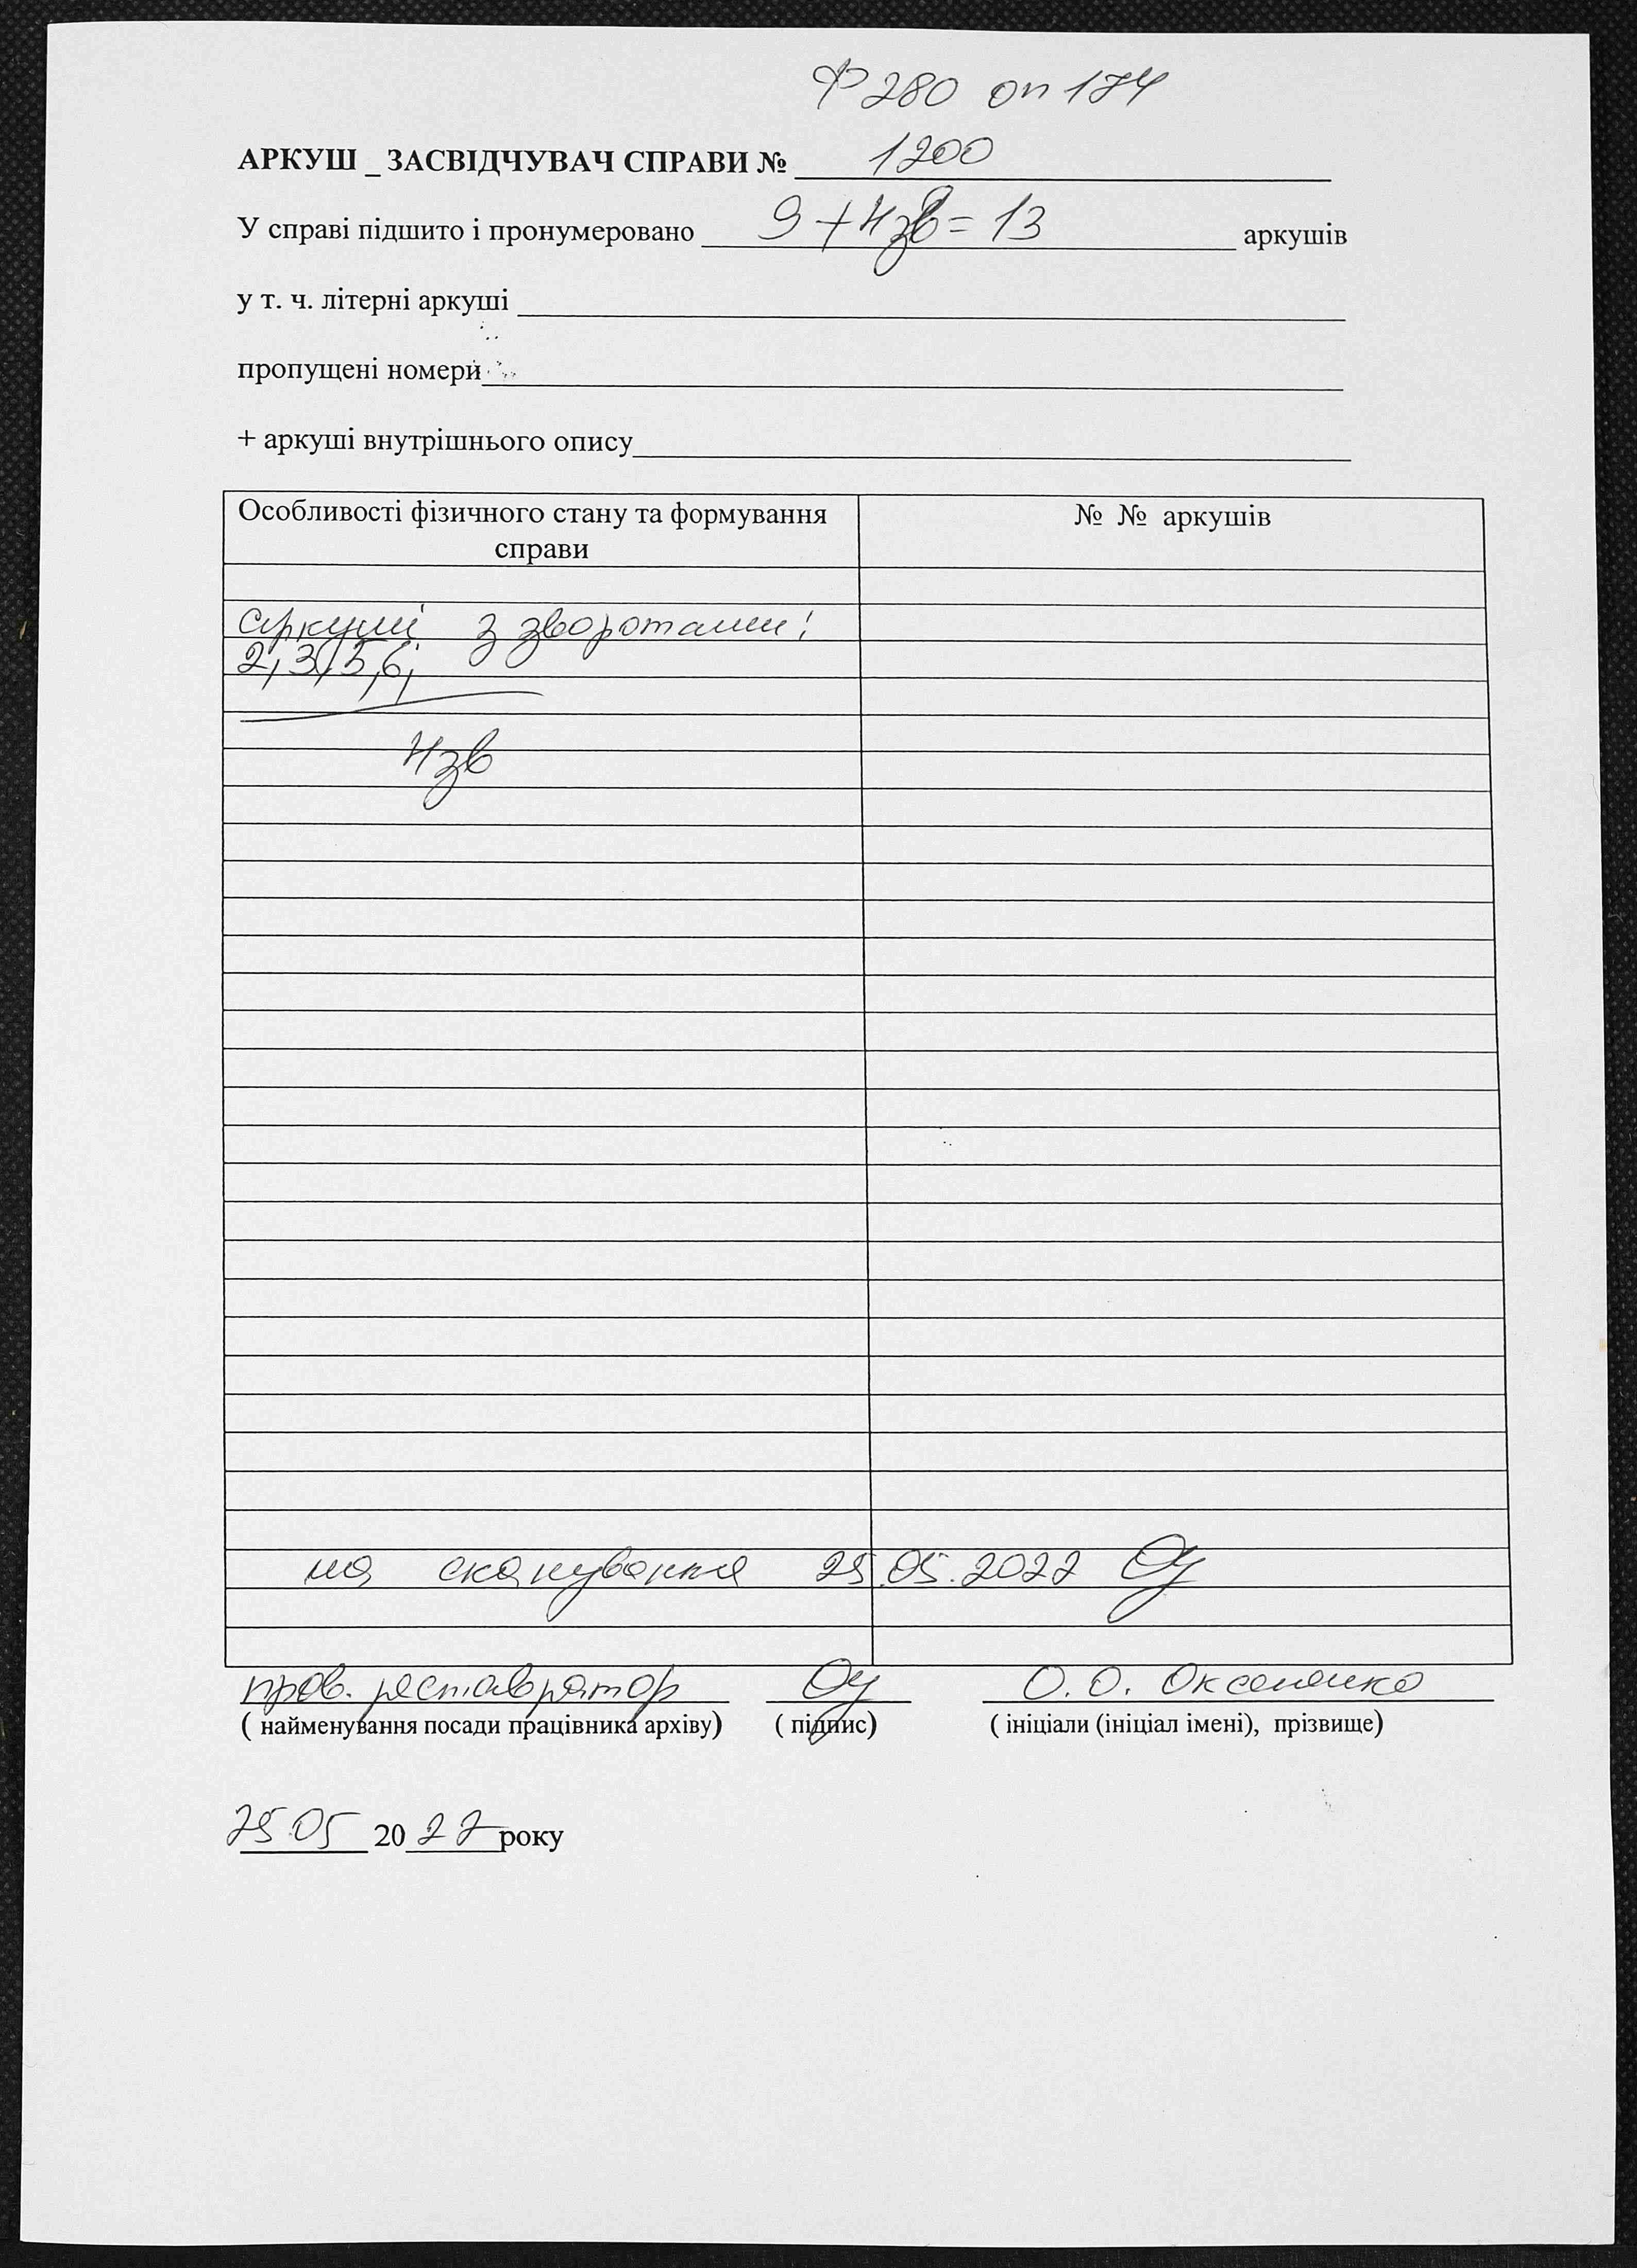 Ф 280 оп 174
АРКУШ _ ЗАСВІДЧУВАЧ СПРАВИ № 1200
У справі підшито і пронумеровано 9 + 4 зв = 13 аркушів
у т. ч. літерні аркуші
пропущені номери
+ аркуші внутрішнього опису
Особливості фізичного стану та формування справи
№ № аркушів
аркуші з зворотами:
2, 3, 5, 6;
4 зв
на сканування 25.05.2022
пров. реставратор О.О. Оксененко
( найменування посади працівника архіву) ( підпис) ( ініціали (ініціал імені), прізвище)
25.05 2022 року